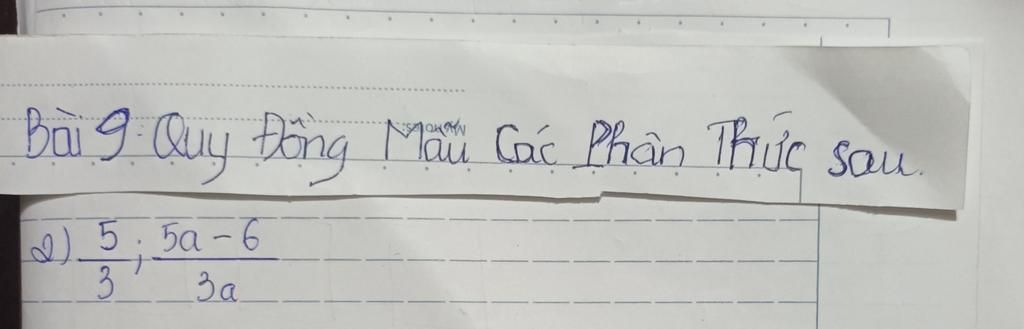 Bài 9: Quy Đồng Mẫu Các Phân Thức sau.
2) 5/3 ; 5a - 6/3a